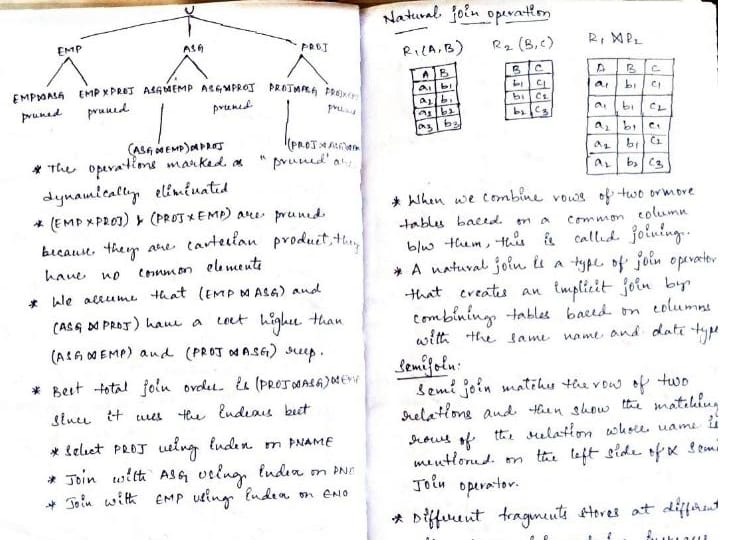 EMP ASG PROJ
EMP⋈ASG EMP×PROJ ASG⋈EMP ASG⋈PROJ PROJ⋈ASG PROJ×EMP
pruned pruned pruned
(ASG⋈EMP)⋈PROJ
* The operations marked as "pruned" are
dynamically eliminated
* (EMP×PROJ) & (PROJ×EMP) are pruned
because they are cartesian product, they
have no common elements
* We assume that (EMP⋈ASG) and
(ASG⋈PROJ) have a cost higher than
(ASG⋈EMP) and (PROJ⋈ASG) resp.
* Best total join order is (PROJ⋈ASG)⋈EMP
since it uses the indexes best
* Select PROJ using index on PNAME
* Join with ASG using index on PNO
* Join with EMP using index on ENO
Natural join operation
R1(A,B) R2(B,C) R1⋈R2
A B
a1 b1
a2 b1
a2 b2
a3 b3
B C
b1 c1
b1 c2
b2 c3
A B C
a1 b1 c1
a1 b1 c2
a2 b1 c1
a2 b1 c2
a2 b2 c3
* When we combine rows of two or more
tables based on a common column
b/w them, this is called joining.
* A natural join is a type of join operator
that creates an implicit join by
combining tables based on columns
with the same name and data type
Semijoin:
Semi join matches the row of two
relations and then show the matching
rows of the relation whose name is
mentioned on the left side of ⋉ Semi
Join operator.
* Different fragments stores at different